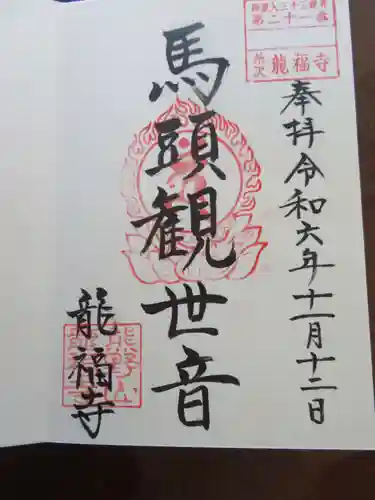 第二十一番
龍福寺
奉拝 令和六年十一月十二日
馬頭観世音
龍福寺